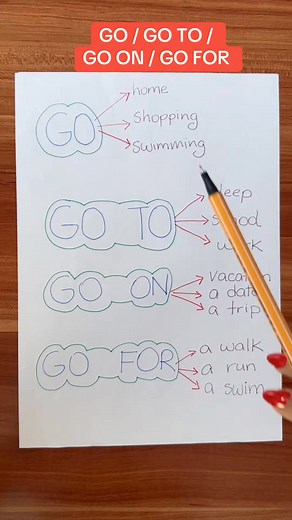 GO / GO TO /
GO ON / GO FOR
GO
home
shopping
swimming
GO TO
sleep
school
work
GO ON
vacation
a date
a trip
GO FOR
a walk
a run
a swim